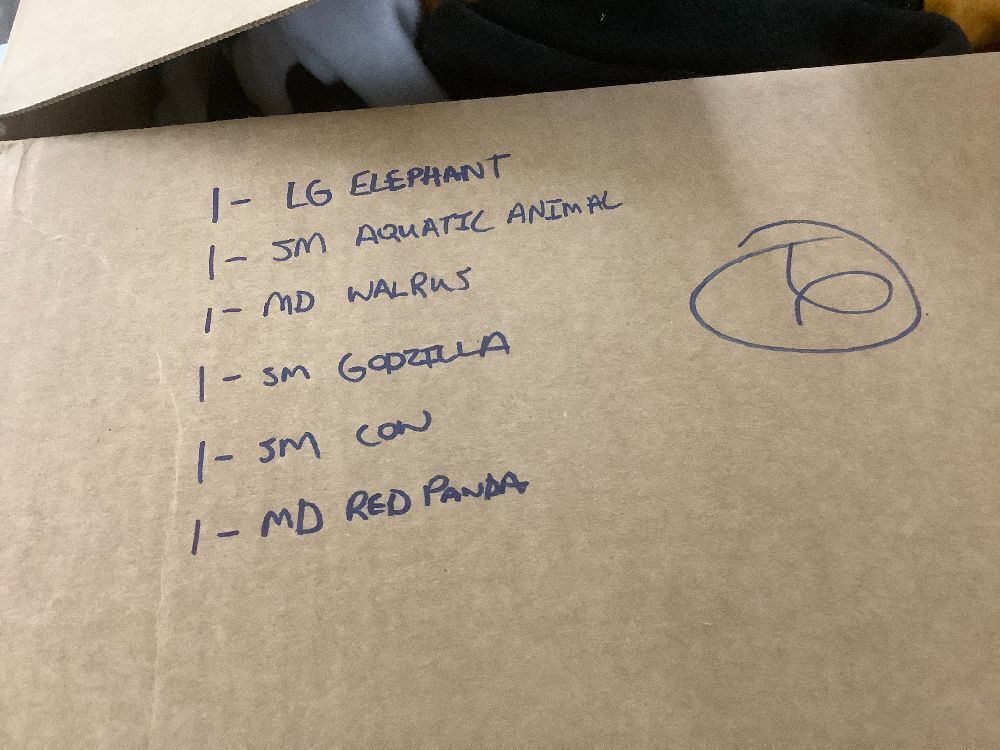 1- LG ELEPHANT
1- SM AQUATIC ANIMAL
1- MD WALRUS
1- SM GODZILLA
1- SM COW
1- MD RED PANDA